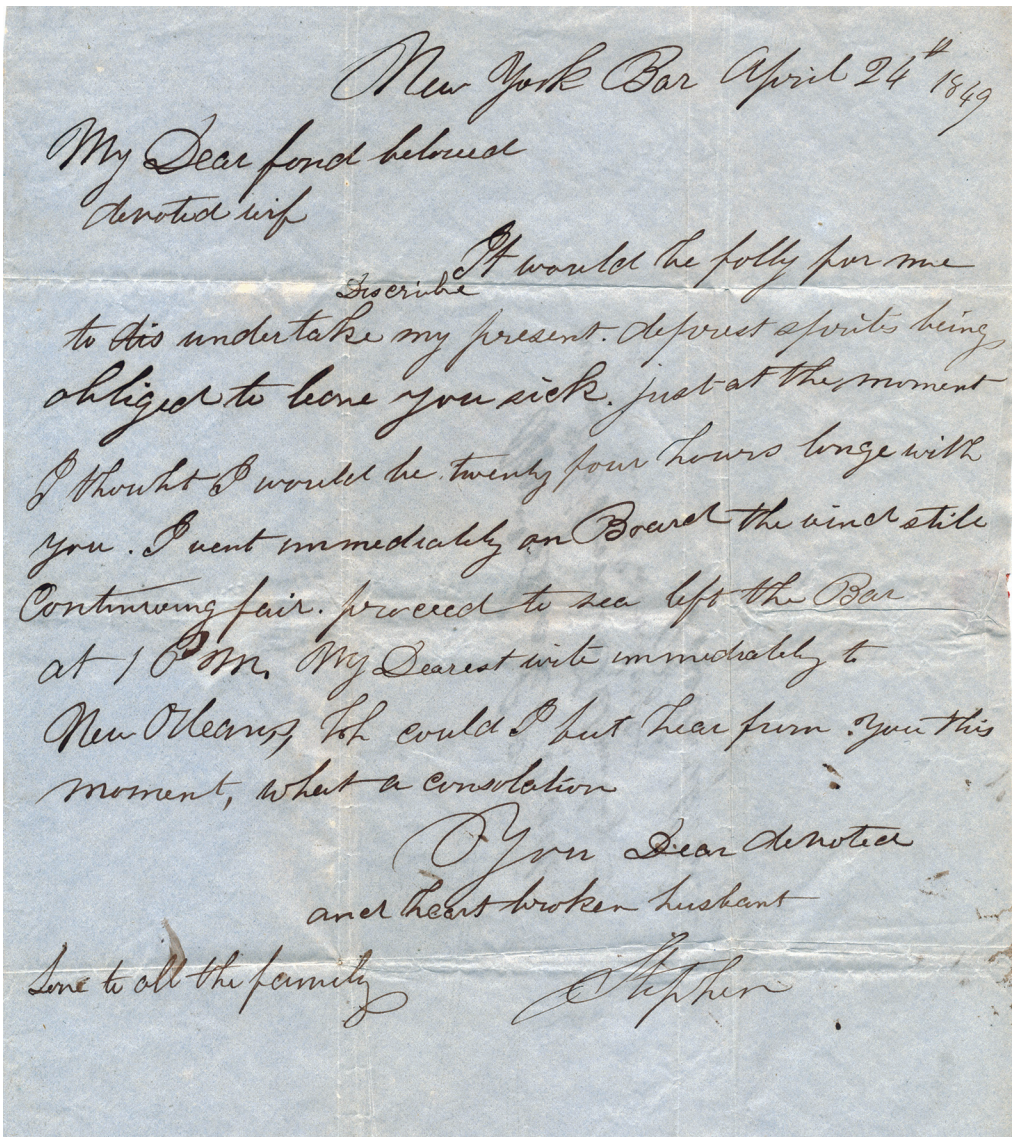 New York Bar April 24th 1849
My Dear fond beloved
devoted wif
It would be folly for me
Discribe
to dis undertake my present. deprest sprits being
obliged to leave you sick. just at the moment
I thouht I would be twenty four hours longe with
you. I went immediately on Board the wind still
Continuing fair. proceed to sea left the Bar
at 1 P M. My Dearest write immediately to
New Orleans, Oh could I but hear from you this
moment, what a consolation
Your Dear devoted
and heart broken husbant
Love to all the family
Stephen